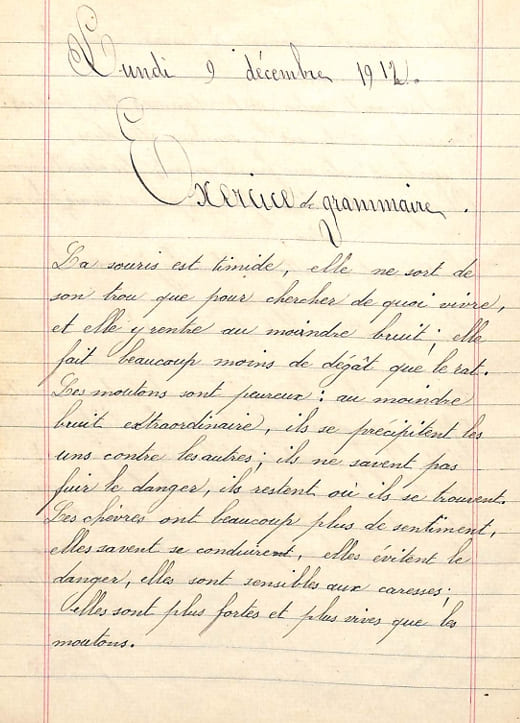 Lundi 9 décembre 1912.
Exercice de grammaire.
La souris est timide, elle ne sort de
son trou que pour chercher de quoi vivre,
et elle y rentre au moindre bruit; elle
fait beaucoup moins de dégât que le rat.
Les moutons sont peureux: au moindre
bruit extraordinaire, ils se précipitent les
uns contre les autres; ils ne savent pas
fuir le danger, ils restent où ils se trouvent.
Les chèvres ont beaucoup plus de sentiment,
elles savent se conduirent, elles évitent le
danger, elles sont sensibles aux caresses;
elles sont plus fortes et plus vives que les
moutons.